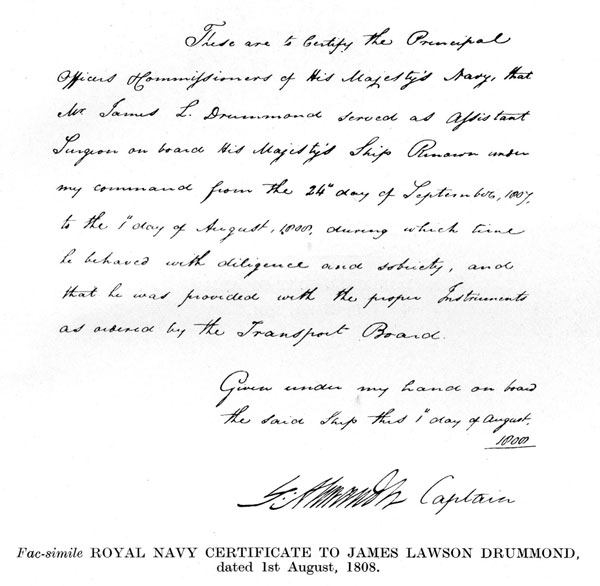 These are to Certify the Principal
Officers Commissioners of His Majesty's Navy, that
Mr. James L. Drummond served as Assistant
Surgeon on board His Majesty's Ship Renown under
my command from the 24th day of September, 1807,
to the 1st day of August, 1808, during which time
he behaved with diligence and sobriety, and
that he was provided with the proper Instruments
as ordered by the Transport Board.
Given under my hand on board
the said Ship this 1st day of August,
1808
Captain
Fac-simile ROYAL NAVY CERTIFICATE TO JAMES LAWSON DRUMMOND,
dated 1st August, 1808.